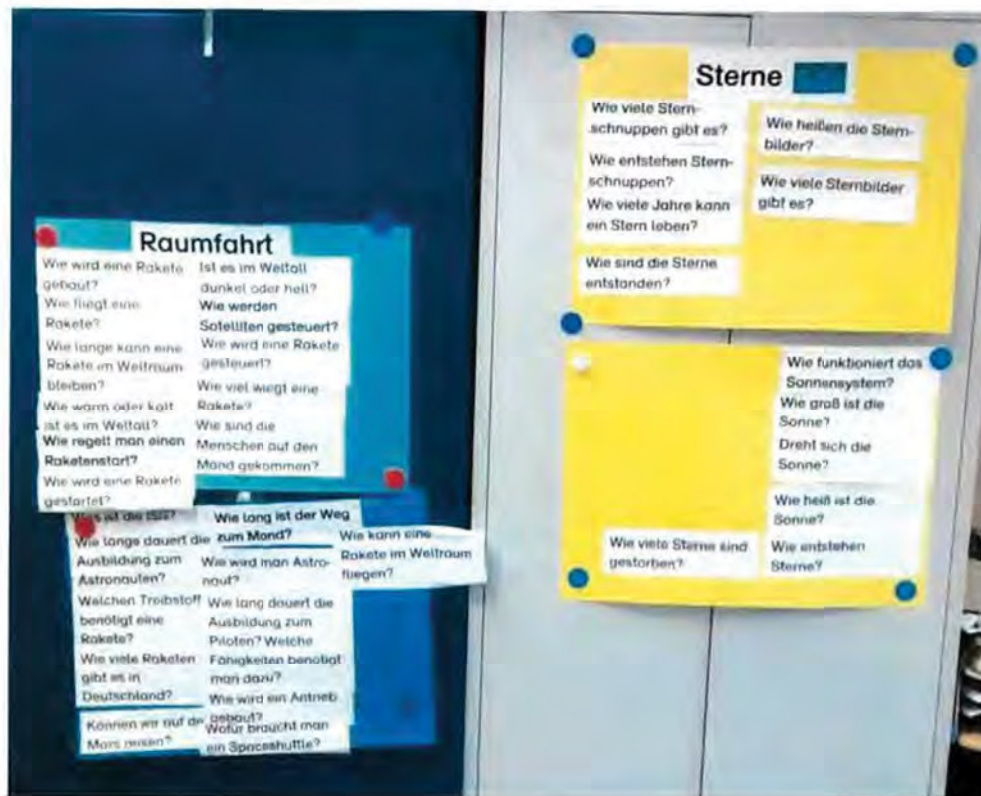 Raumfahrt
Wie wird eine Rakete
gebaut?
Wie fliegt eine
Rakete?
Wie lange kann eine
Rakete im Weltraum
bleiben?
Wie warm oder kalt
ist es im Weltall?
Wie regelt man einen
Raketenstart?
Wie wird eine Rakete
gestartet?
Ist es im Weltall
dunkel oder hell?
Wie werden
Satelliten gesteuert?
Wie wird eine Rakete
gesteuert?
Wie viel wiegt eine
Rakete?
Wie sind die
Menschen auf den
Mond gekommen?
ist die ISS?
Wie lange dauert die
Ausbildung zum
Astronauten?
Welchen Treibstoff
benötigt eine
Rakete?
Wie viele Raketen
gibt es in
Deutschland?
Können wir auf
Mars reisen?
Wie lang ist der Weg
zum Mond?
Wie wird man Astro-
naut?
Wie lang dauert die
Ausbildung zum
Piloten? Welche
Fähigkeiten benötigt
man dazu?
Wie wird ein Antrieb
gebaut?
Wofür braucht man
ein Spaceshuttle?
Wie kann eine
Rakete im Weltraum
fliegen?
Sterne
Wie viele Stern-
schnuppen gibt es?
Wie entstehen Stern-
schnuppen?
Wie viele Jahre kann
ein Stern leben?
Wie sind die Sterne
entstanden?
Wie heißen die Stern-
bilder?
Wie viele Sternbilder
gibt es?
Wie funktioniert das
Sonnensystem?
Wie groß ist die
Sonne?
Dreht sich die
Sonne?
Wie heiß ist die
Sonne?
Wie entstehen
Sterne?
Wie viele Sterne sind
gestorben?